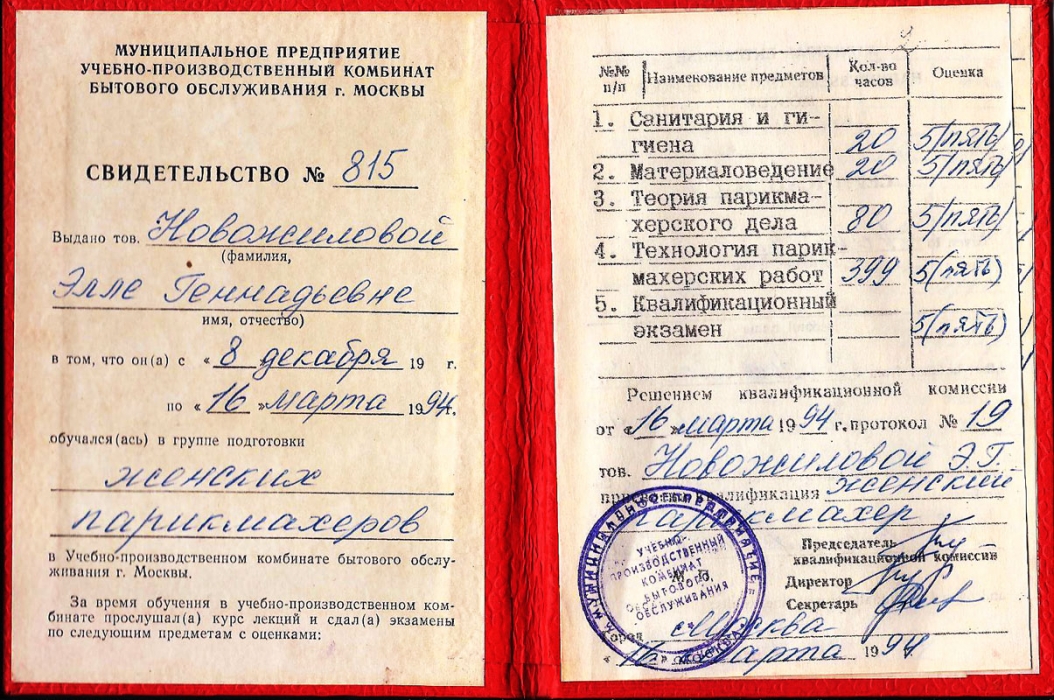 МУНИЦИПАЛЬНОЕ ПРЕДПРИЯТИЕ
УЧЕБНО-ПРОИЗВОДСТВЕННЫЙ КОМБИНАТ
БЫТОВОГО ОБСЛУЖИВАНИЯ г. МОСКВЫ
СВИДЕТЕЛЬСТВО № 815
Выдано тов. Новожиловой
(фамилия,
Элле Геннадьевне
имя, отчество)
в том, что он(а) с «8 декабря 19 г.
по «16» марта 1994г.
обучался(ась) в группе подготовки
женских
парикмахеров
в Учебно-производственном комбинате бытового обслу-
живания г. Москвы.
За время обучения в учебно-производственном ком-
бинате прослушал(а) курс лекций и сдал(а) экзамены
по следующим предметам с оценками:
№№ п/п Наименование предметов Кол-во часов Оценка
1. Санитария и ги-
гиена 20 5(пять)
2. Материаловедение 20 5(пять)
3. Теория парикма-
херского дела 80 5(пять)
4. Технология парик-
махерских работ 399 5(пять)
5. Квалификационный
экзамен 5(пять)
Решением квалификационной комиссии
от «16» марта 1994 г. протокол № 19
тов. Новожиловой Э.Г.
квалификация женский
парикмахер
Председатель
квалификационной комиссии
Директор
Секретарь
МУНИЦИПАЛЬНОЕ ПРЕДПРИЯТИЕ
УЧЕБНО-
ПРОИЗВОДСТВЕННЫЙ
КОМБИНАТ
БЫТОВОГО
ОБСЛУЖИВАНИЯ
МОСКВА
Город Москва
«16» марта 1994